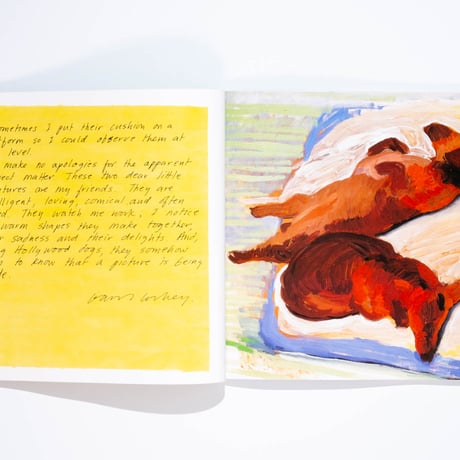 ometimes I put their cushion on a
tform so I could observe them at
level.
make no apologies for the apparent
ect matter. These two dear little
tures are my friends. They are
lligent, loving, comical and often
d. They watch me work, I notice
warm shapes they make together,
r sadness and their delights. And,
g Hollywood dogs, they somehow
to know that a picture is being
de.